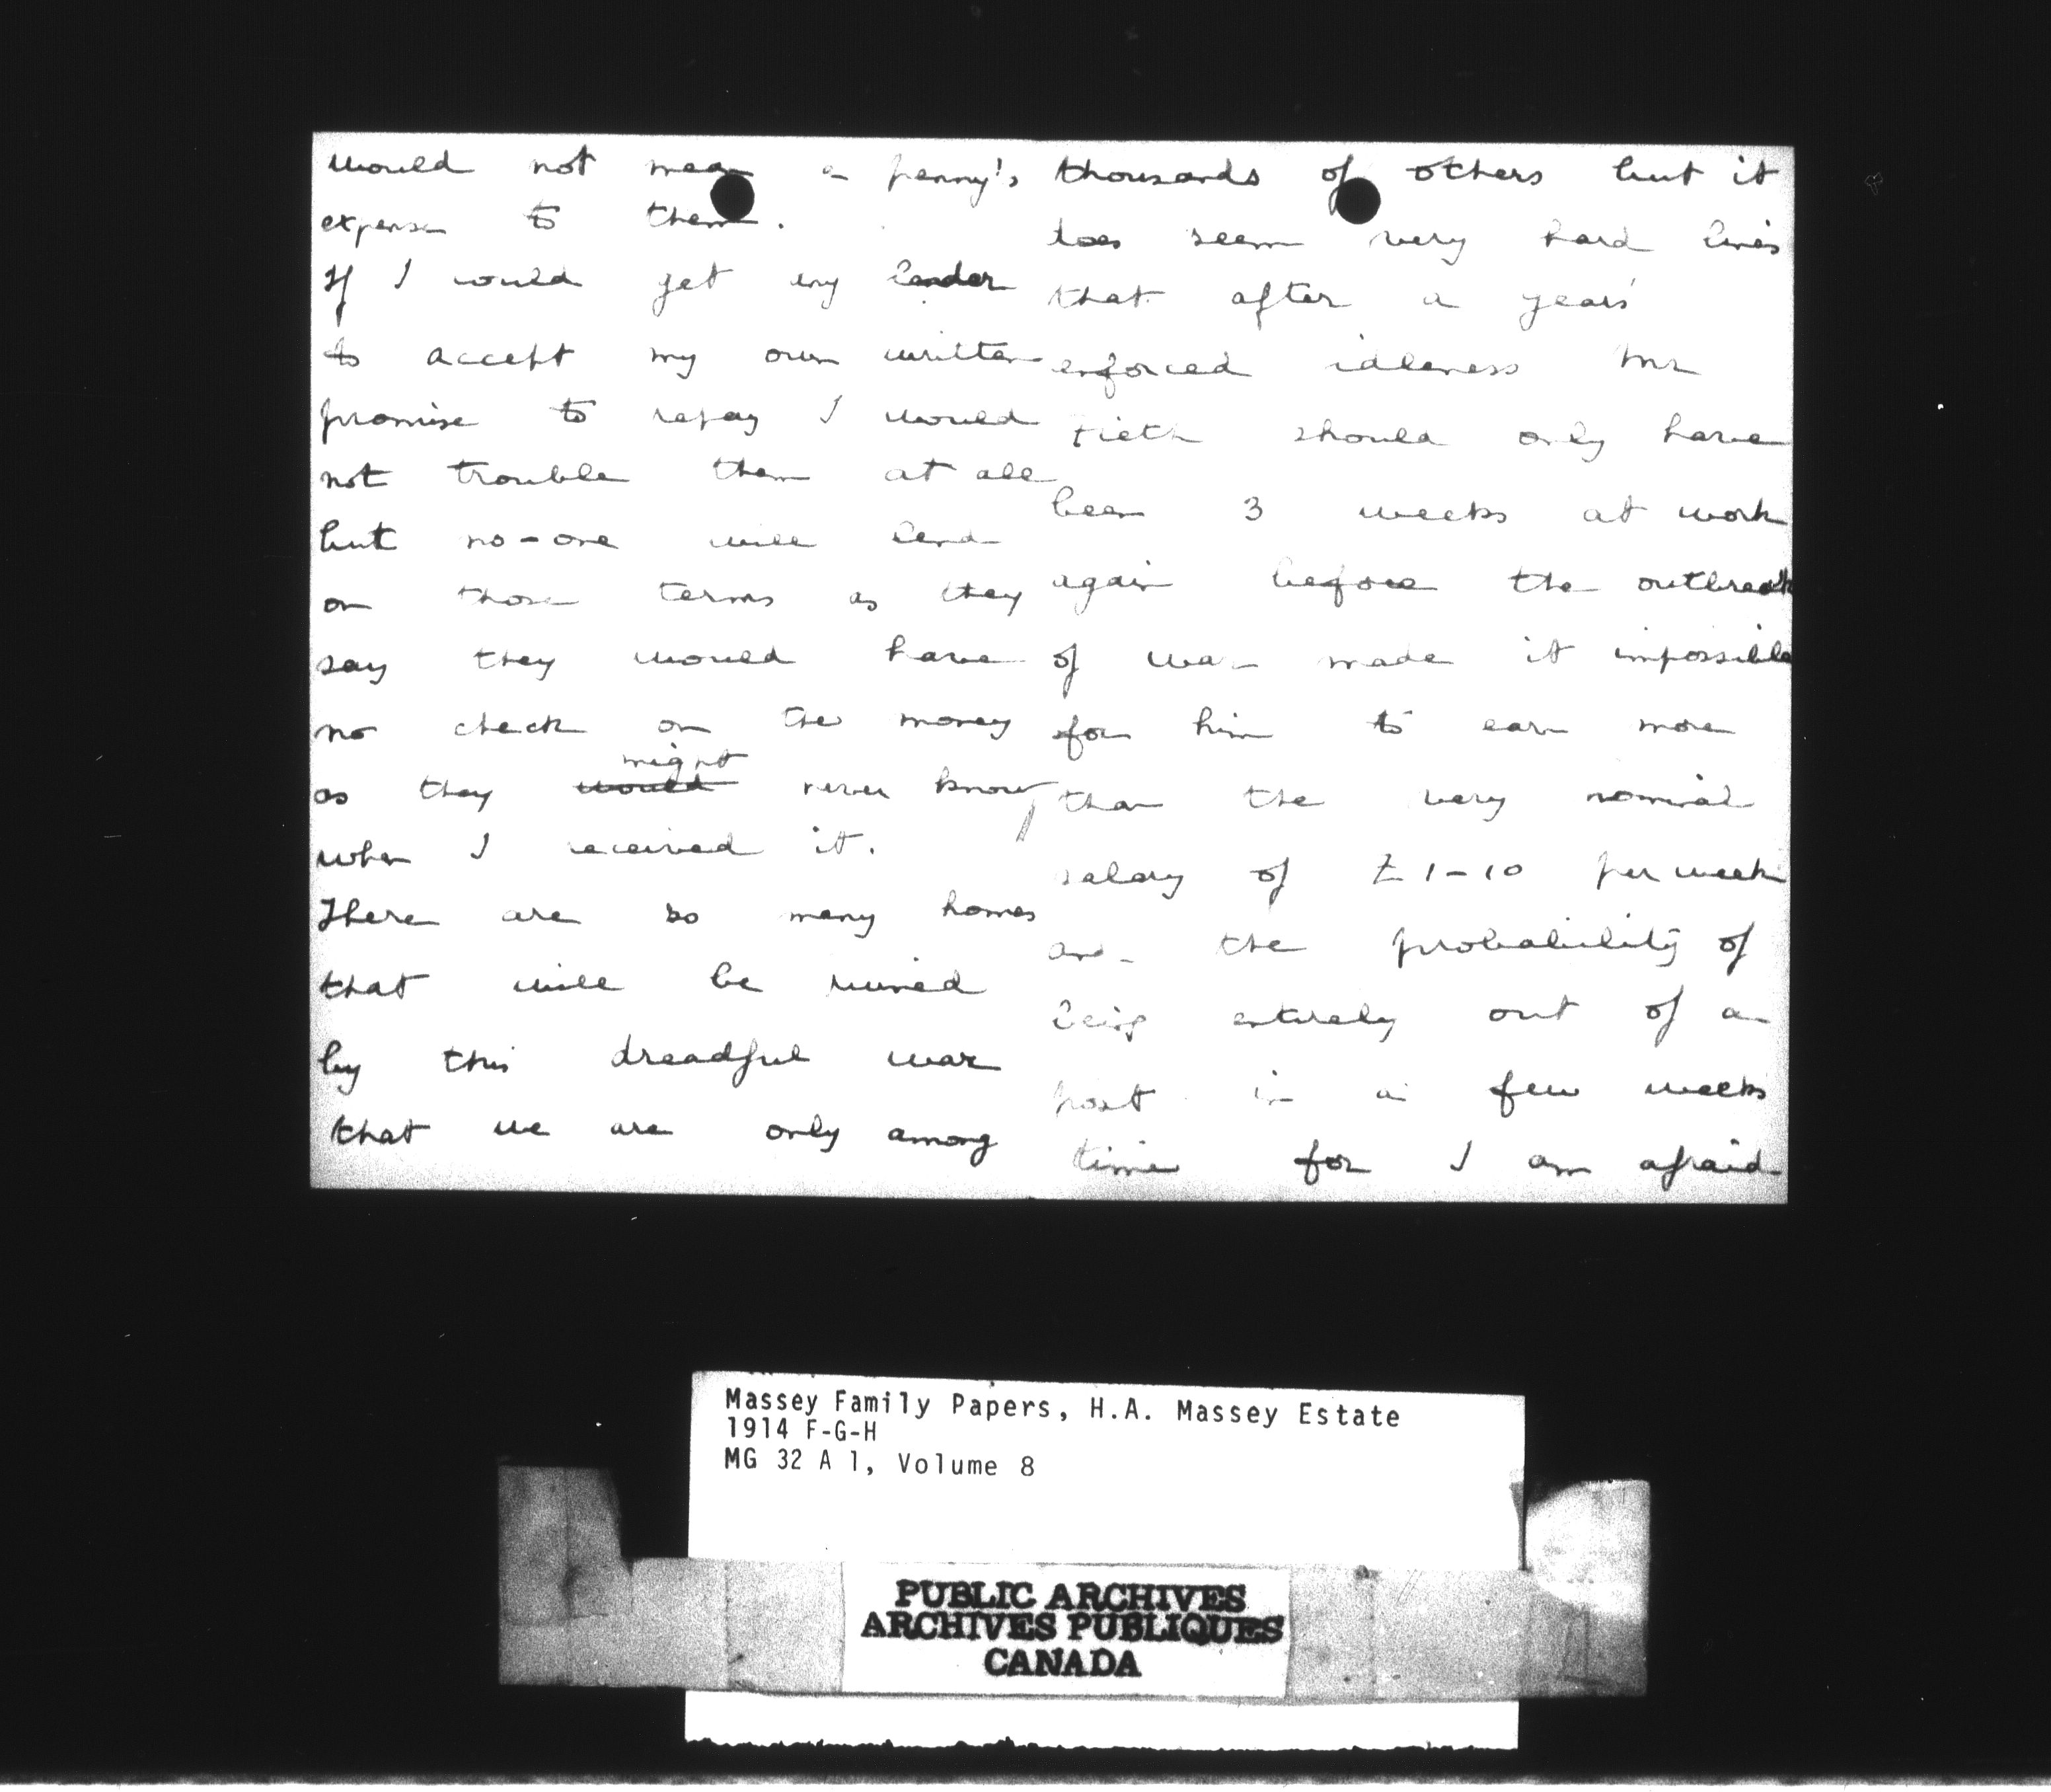 would not mean a penny's
expense to them.
If I would get any lender
to accept my own written
promise to repay I would
not trouble them at all
but no-one will lend
on those terms as they
say they would have
no check on the money
might
as they would never know
when I received it.
There are so many homes
that will be ruined
by this dreadful war
that we are only among
thousands of others but it
does seem very hard lines
that after a years'
enforced idleness Mr
should only have
been 3 weeks at work
again before the outbreak
of war made it impossible
for him to earn more
than the very nominal
salary of £1-10 per week
and the probability of
being entirely out of a
post in a few weeks
time for I am afraid
Massey Family Papers, H.A. Massey Estate
1914 F-G-H
MG 32 A 1, Volume 8
PUBLIC ARCHIVES
ARCHIVES PUBLIQUES
CANADA